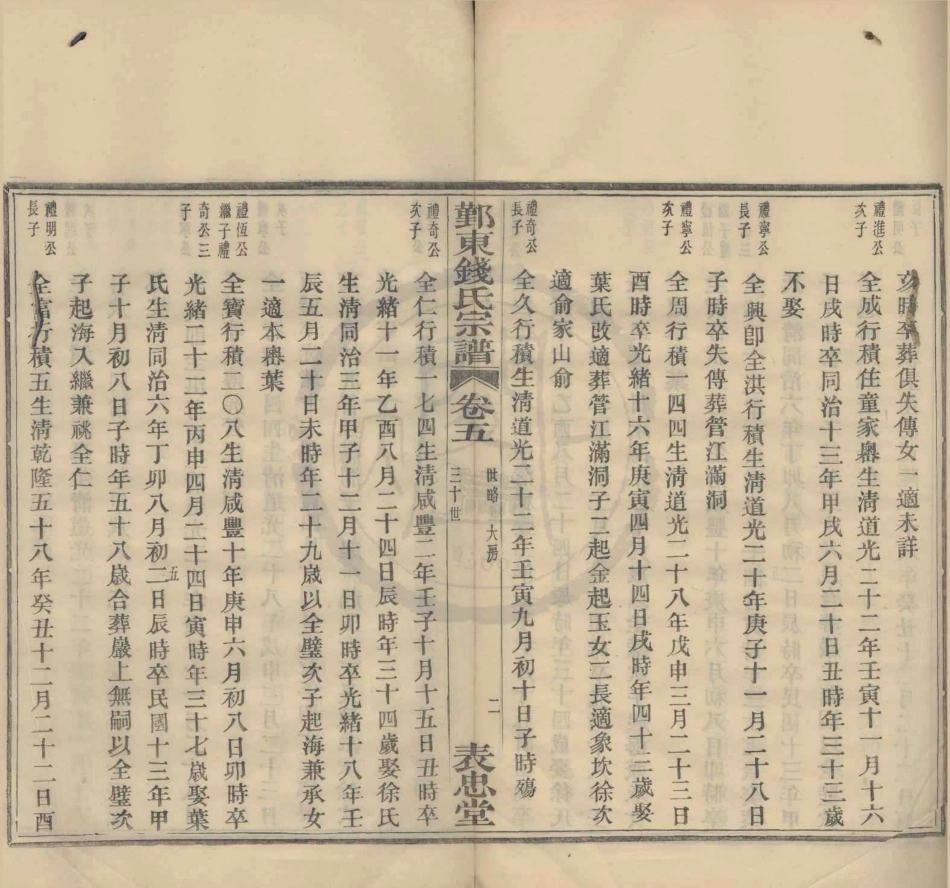 亥時卒葬俱失傳女一適未詳
禮進公次子
全成行積住童家嶴生清道光二十二年壬寅十一月十六
日戌時卒同治十三年甲戌六月二十日丑時年三十三歲
不娶
禮寧公長子
全興即全洪行積生清道光二十年庚子十一月二十八日
子時卒失傳葬管江滿洞
禮寧公次子
全周行積一四四生清道光二十八年戊申三月二十三日
酉時卒光緒十六年庚寅四月十四日戌時年四十三歲娶
葉氏改適葬管江滿洞子二起金起玉女二長適象坎徐次
適俞家山俞
禮奇公長子
全久行積生清道光二十二年壬寅九月初十日子時殤
鄞東錢氏宗譜
卷五
世略 大房
三十世
二
表忠堂
禮奇公次子
全仁行積一七四生清咸豐二年壬子十月十五日丑時卒
光緒十一年乙酉八月二十四日辰時年三十四歲娶徐氏
生清同治三年甲子十二月十一日卯時卒光緒十八年壬
辰五月二十日未時年二十九歲以全璧次子起海兼承女
一適本嶴葉
禮恆公繼子禮奇公三子
全寶行積二〇八生清咸豐十年庚申六月初八日卯時卒
光緒二十二年丙申四月二十四日寅時年三十七歲娶葉
氏生清同治六年丁卯八月初二日辰時卒民國十三年甲
五
子十月初八日子時年五十八歲合葬巖上無嗣以全璧次
子起海入繼兼祧全仁
禮明公長子
全富行積五生清乾隆五十八年癸丑十二月二十二日酉